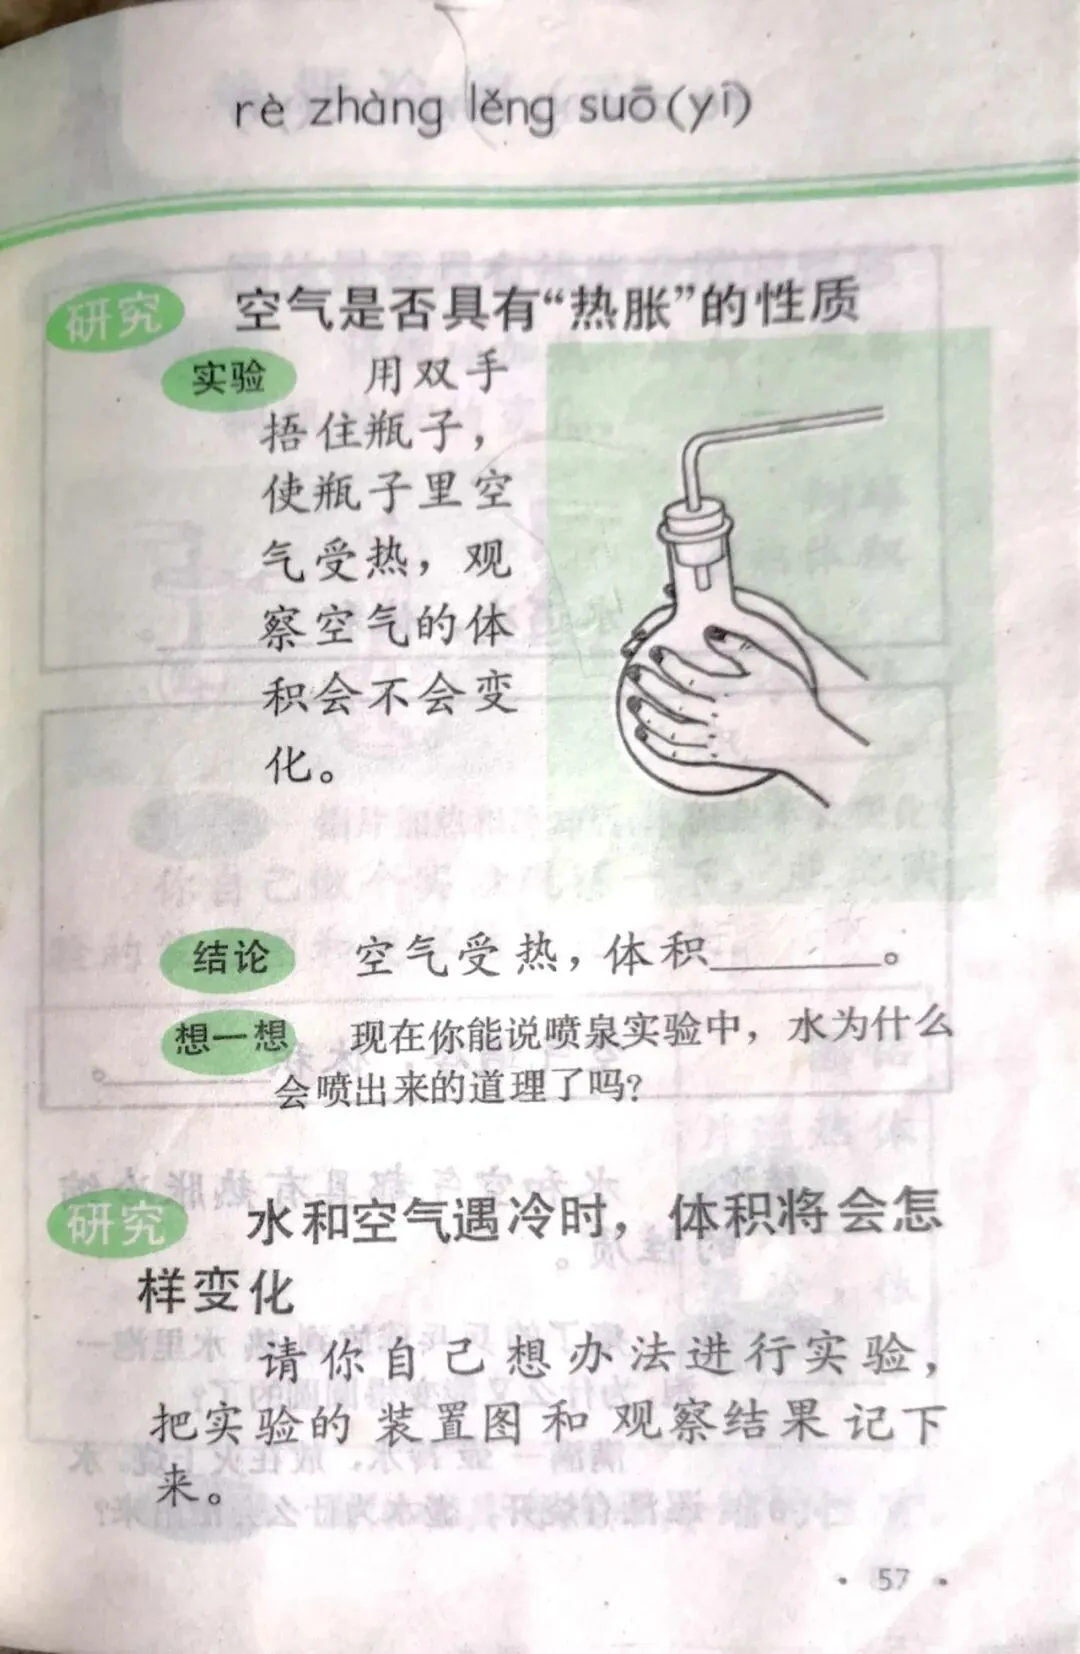 rè zhàng lěng suō(yī)
研究 空气是否具有“热胀”的性质
实验 用双手
捂住瓶子，
使瓶子里空
气受热，观
察空气的体
积会不会变
化。
结论 空气受热，体积______。
想一想 现在你能说喷泉实验中，水为什么
会喷出来的道理了吗？
研究 水和空气遇冷时，体积将会怎
样变化
请你自己想办法进行实验，
把实验的装置图和观察结果记下
来。
·57·